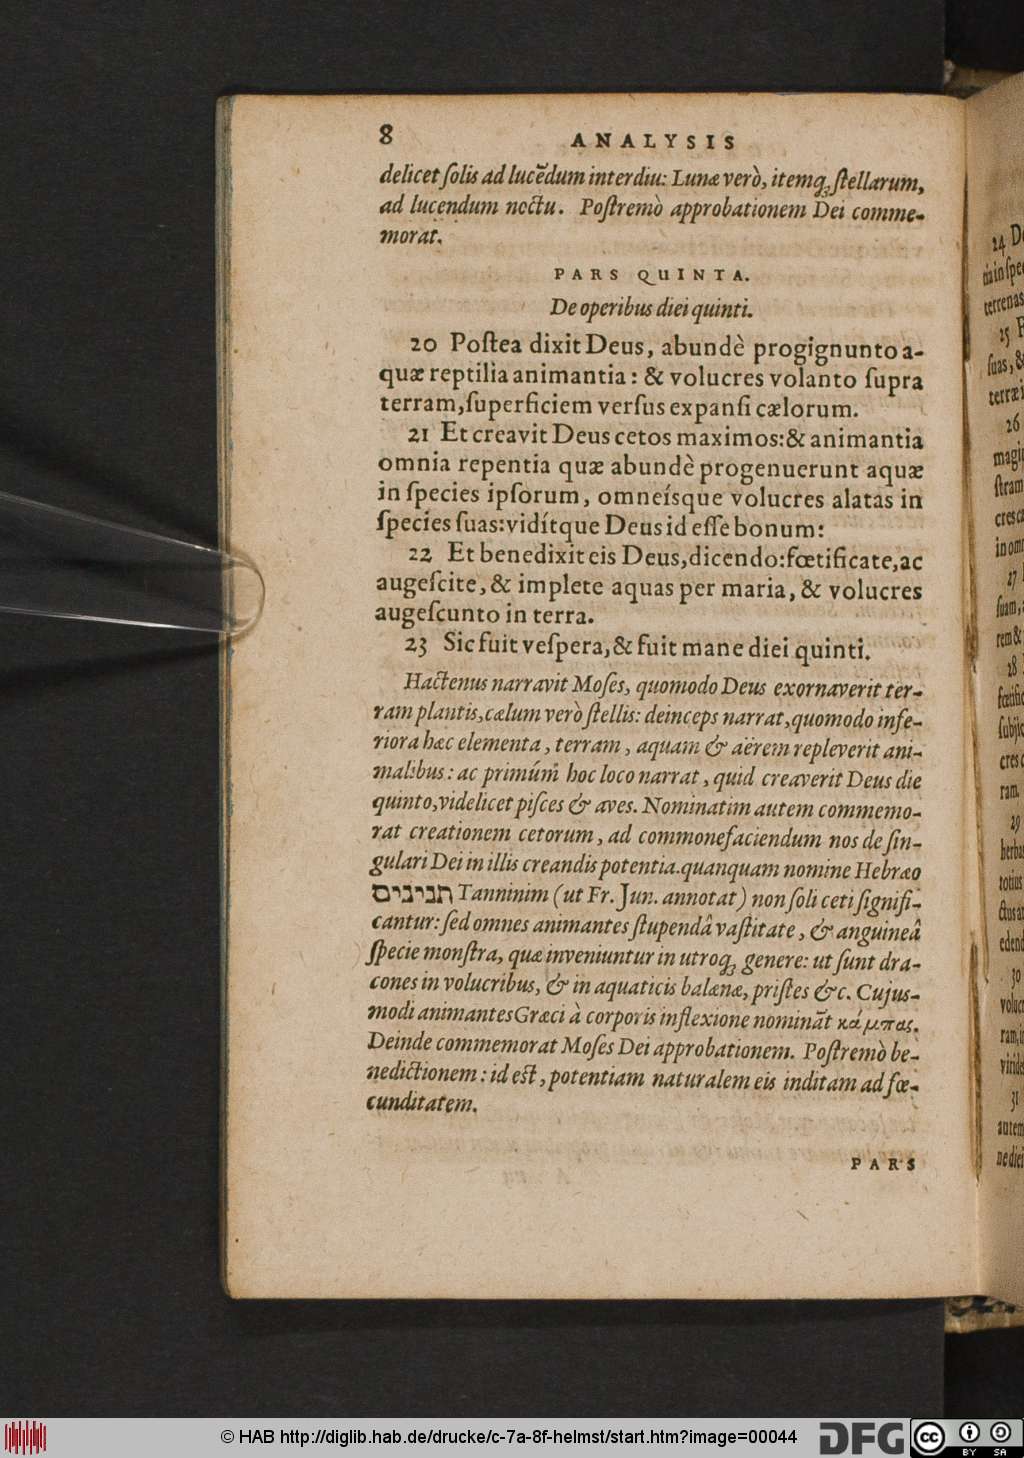 8 ANALYSIS
delicet ſolis ad lucẽdum interdiu: Lunæ verò, itemq; ſtellarum,
ad lucendum noctu. Poſtremò approbationem Dei comme-
morat.
PARS QUINTA.
De operibus diei quinti.
20 Poſtea dixit Deus, abundè progignunto a-
quæ reptilia animantia: & volucres volanto ſupra
terram, ſuperficiem verſus expanſi cælorum.
21 Et creavit Deus cetos maximos: & animantia
omnia repentia quæ abundè progenuerunt aquæ
in ſpecies ipſorum, omneíſque volucres alatas in
ſpecies ſuas: vidítque Deus id eſſe bonum:
22 Et benedixit eis Deus, dicendo: fœtificate, ac
augeſcite, & implete aquas per maria, & volucres
augeſcunto in terra.
23 Sic fuit veſpera, & fuit mane diei quinti.
Hactenus narravit Moſes, quomodo Deus exornaverit ter-
ram plantis, cælum verò ſtellis: deinceps narrat, quomodo infe-
riora hæc elementa, terram, aquam & aërem repleverit ani-
malibus: ac primúm hoc loco narrat, quid creaverit Deus die
quinto, videlicet piſces & aves. Nominatim autem commemo-
rat creationem cetorum, ad commonefaciendum nos de ſin-
gulari Dei in illis creandis potentia. quanquam nomine Hebræo
תניבים Tanninim (ut Fr. Jun. annotat) non ſoli ceti ſignifi-
cantur: ſed omnes animantes ſtupendâ vaſtitate, & anguineâ
ſpecie monſtra, quæ inveniuntur in utroq; genere: ut ſunt dra-
cones in volucribus, & in aquaticis balænæ, priſtes &c. Cujus-
modi animantes Græci à corporis inflexione nominãt κάμπας.
Deinde commemorat Moſes Dei approbationem. Poſtremò be-
nedictionem: id eſt, potentiam naturalem eis inditam ad fœ-
cunditatem.
PARS
24 De
ria in ſpec
terrenas
25 F
ſuas, &
terræ i
26
magin
ſtram
cres cæ
in omn
27
ſuam, a
rem &
28
fœtific
ſubjic
cres c
ram.
29
herbas
totius
ctus at
edend
30
volucr
ram, in
viride
31
autem
ne diei
© HAB http://diglib.hab.de/drucke/c-7a-8f-helmst/start.htm?image=00044
DFG
cc BY SA